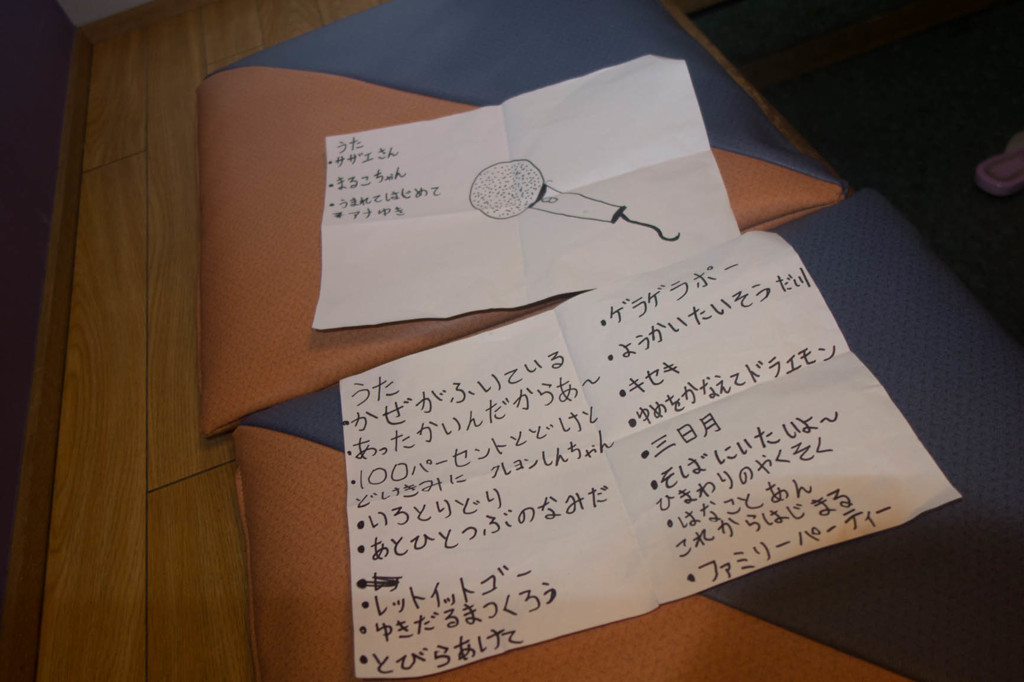 うた
・サザエさん
・まるこちゃん
・うまれてはじめて
アナゆき
うた
・かぜがふいている
・あったかいんだからあ〜
・100パーセントとどけと
どけきみに クレヨンしんちゃん
・いろとりどり
・あとひとつぶのなみだ
・レットイットゴー
・ゆきだるまつくろう
・とびらあけて
・ゲラゲラポー
・ようかいたいそうだい
・キセキ
・ゆめをかなえてドラエモン
・三日月
・そばにいたいよ〜
ひまわりのやくそく
・はなことあん
これからはじまる
・ファミリーパーティー